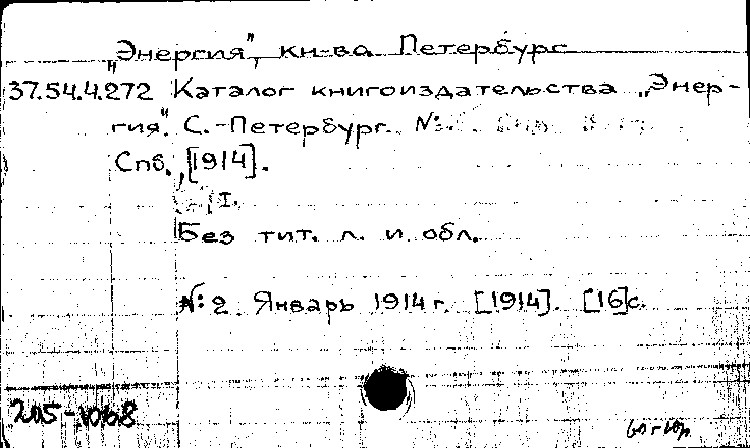 "Энергия", кн-ва Петербург
37.54.4.272 Каталог книгоиздательства „Энер-
гия". С.-Петербург.
Спб., [1914].
I.
Без тит. л. и обл.
№: 2. Январь 1914 г. [1914]. [16]с.
205-1068